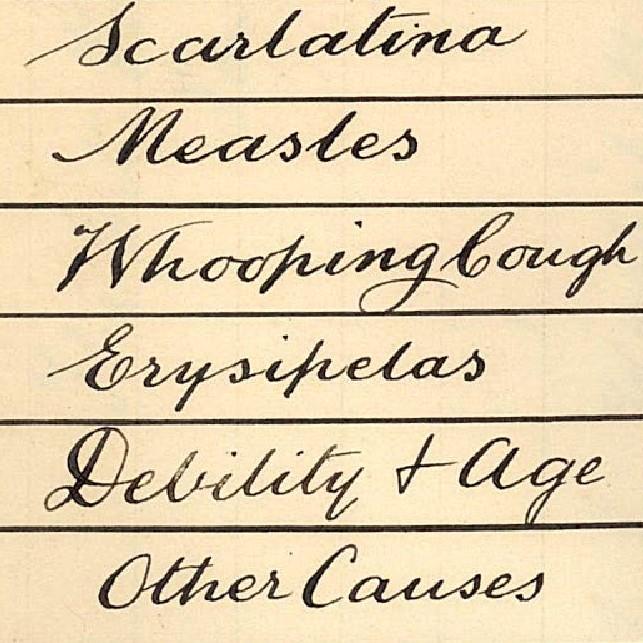 Scarlatina
Measles
Whooping Cough
Erysipelas
Debility & Age
Other Causes